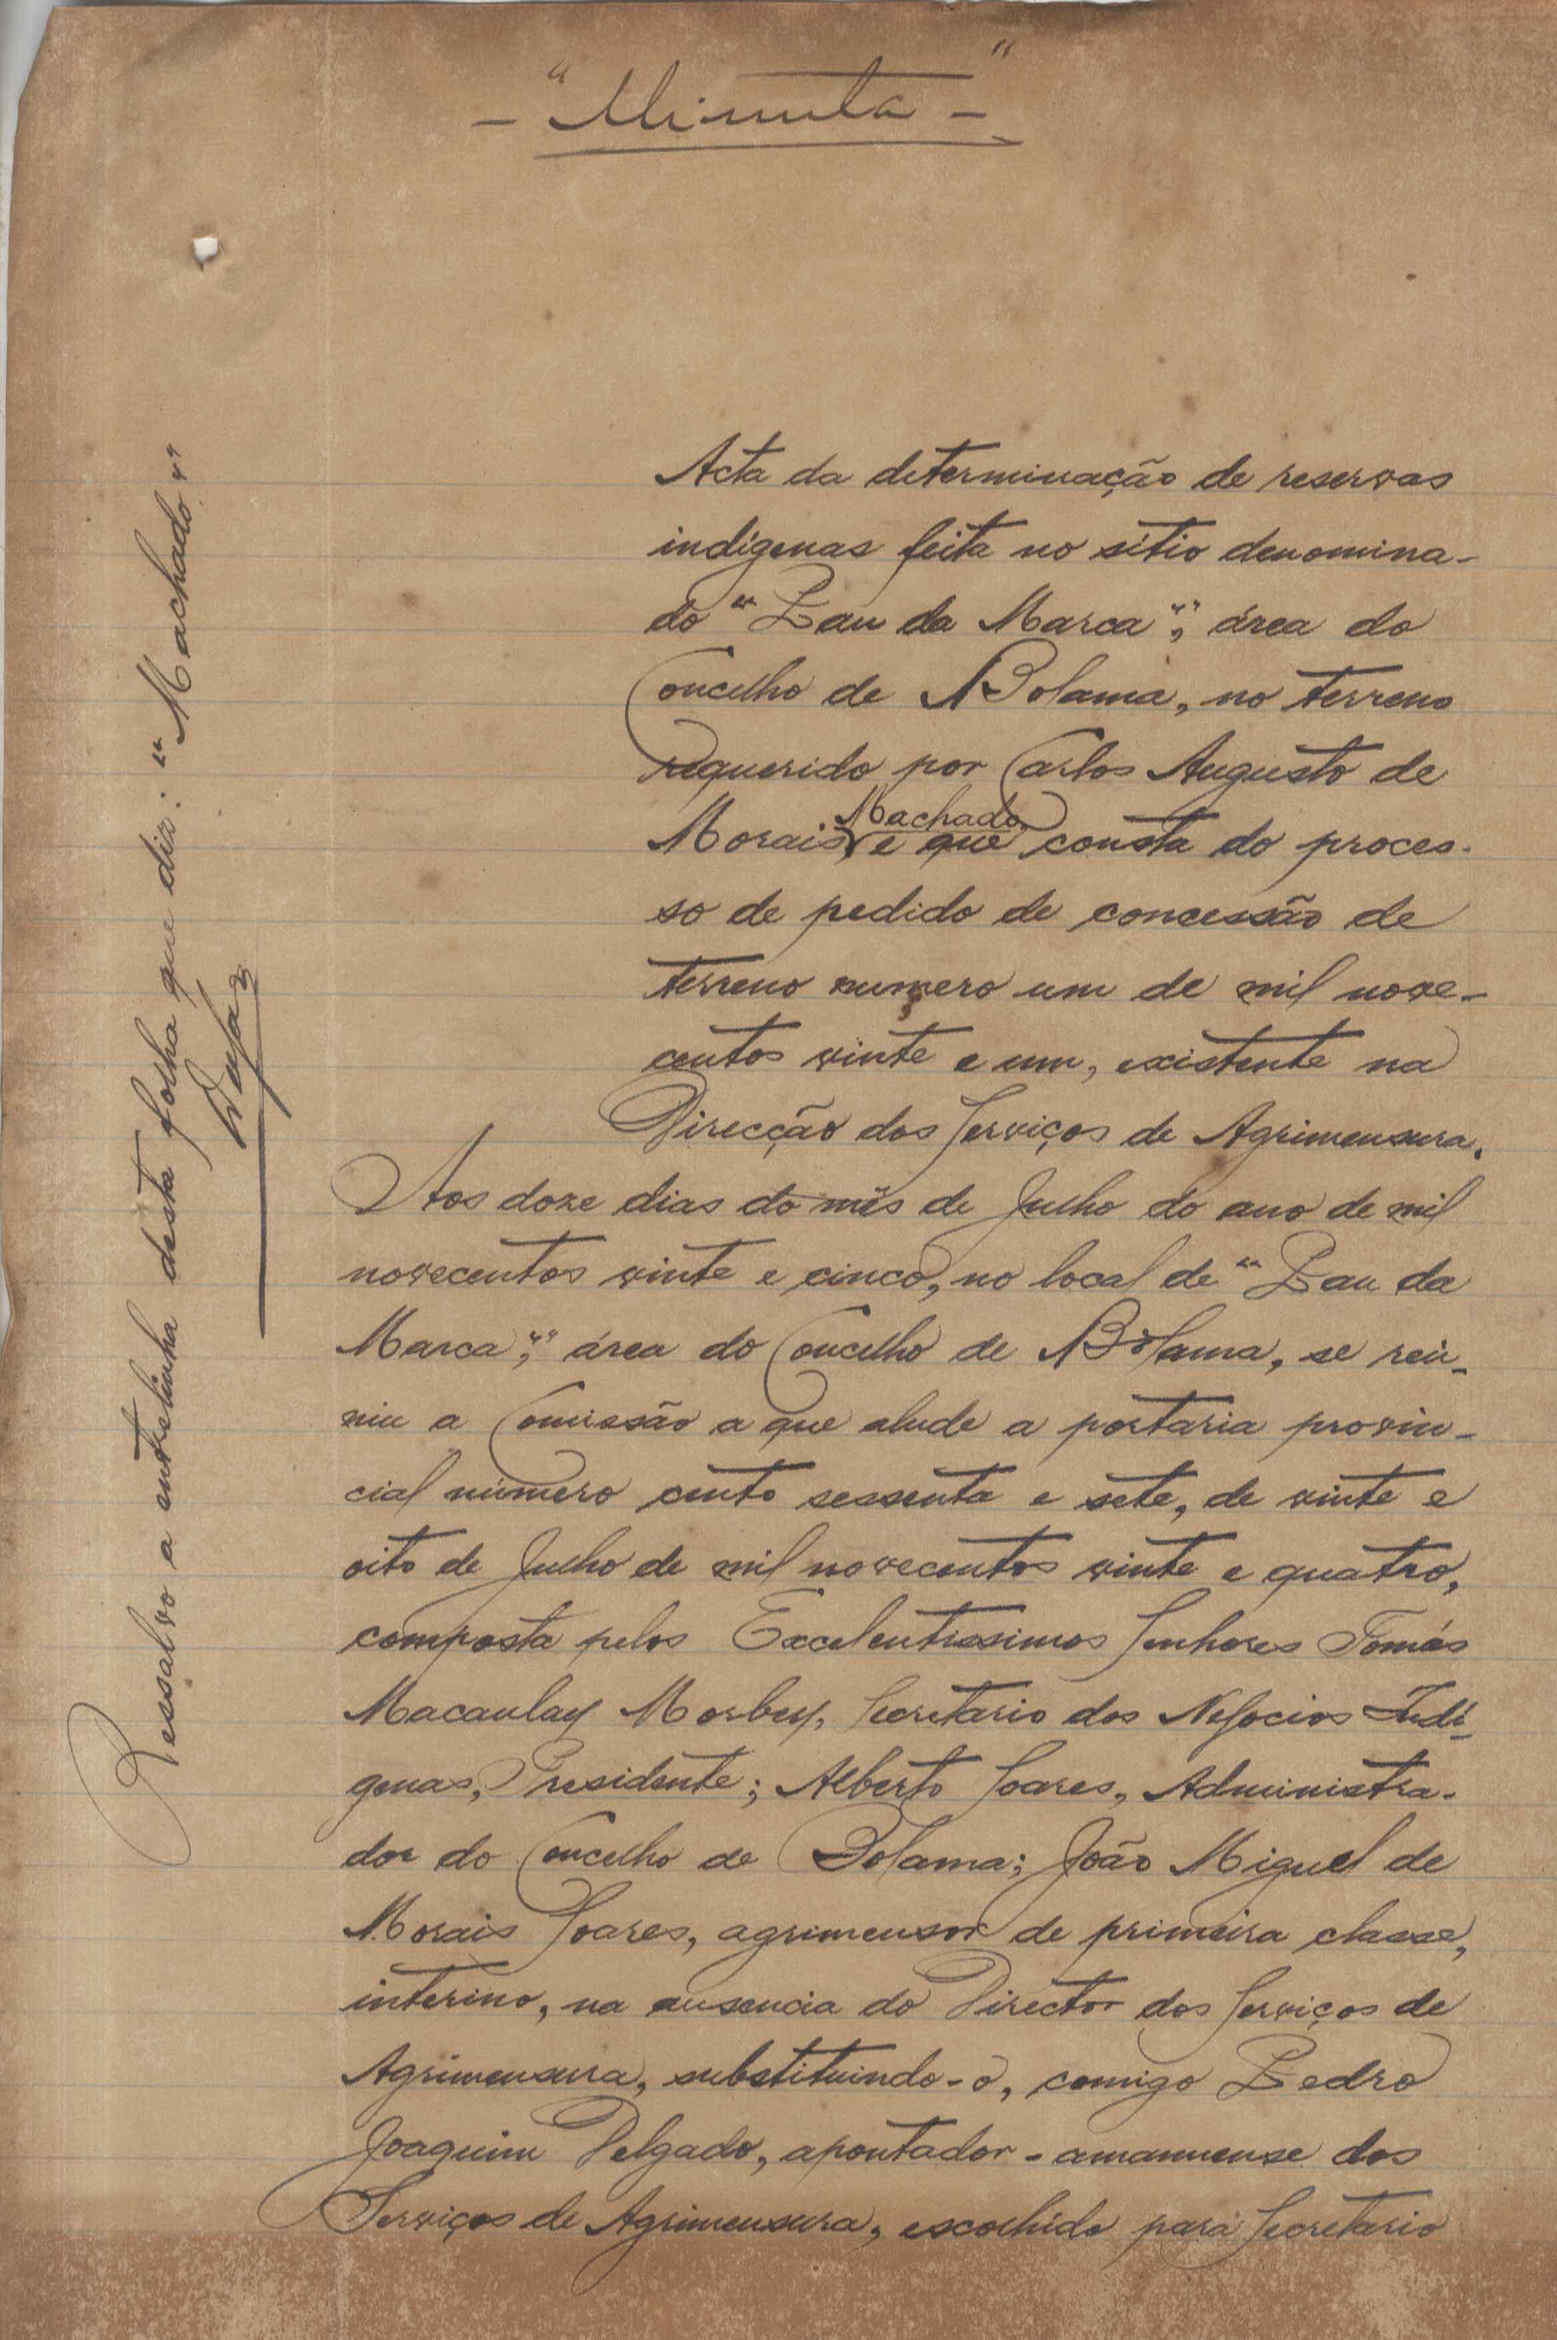 - "Minuta" -
Acta da determinação de reservas
indígenas feita no sítio denomina-
do "Pau da Marca", área do
Concelho de Bolama, no terreno
requerido por Carlos Augusto de
Morais Machado, e que consta do proces-
so de pedido de concessão de
terreno numero um de mil nove-
centos vinte e um, existente na
Direcção dos Serviços de Agrimensura.
Aos doze dias do mês de Julho do ano de mil
novecentos vinte e cinco, no local de "Pau da
Marca", área do Concelho de Bolama, se reü-
niu a Comissão a que alude a portaria provin-
cial número cento sessenta e sete, de vinte e
oito de Julho de mil novecentos vinte e quatro,
composta pelos Excelentissimos Senhores Tomás
Macaulay Morbey, Secretario dos Negocios Indí-
genas, Presidente; Alberto Soares, Administra-
dor do Concelho de Bolama; João Miguel de
Morais Soares, agrimensor de primeira classe,
interino, na ausencia do Director dos Serviços de
Agrimensura, substituindo-o, comigo Pedro
Joaquim Delgado, apontador-amanuense dos
Serviços de Agrimensura, escolhido para Secretario
Ressalvo a entrelinha desta folha que diz: "Machado"